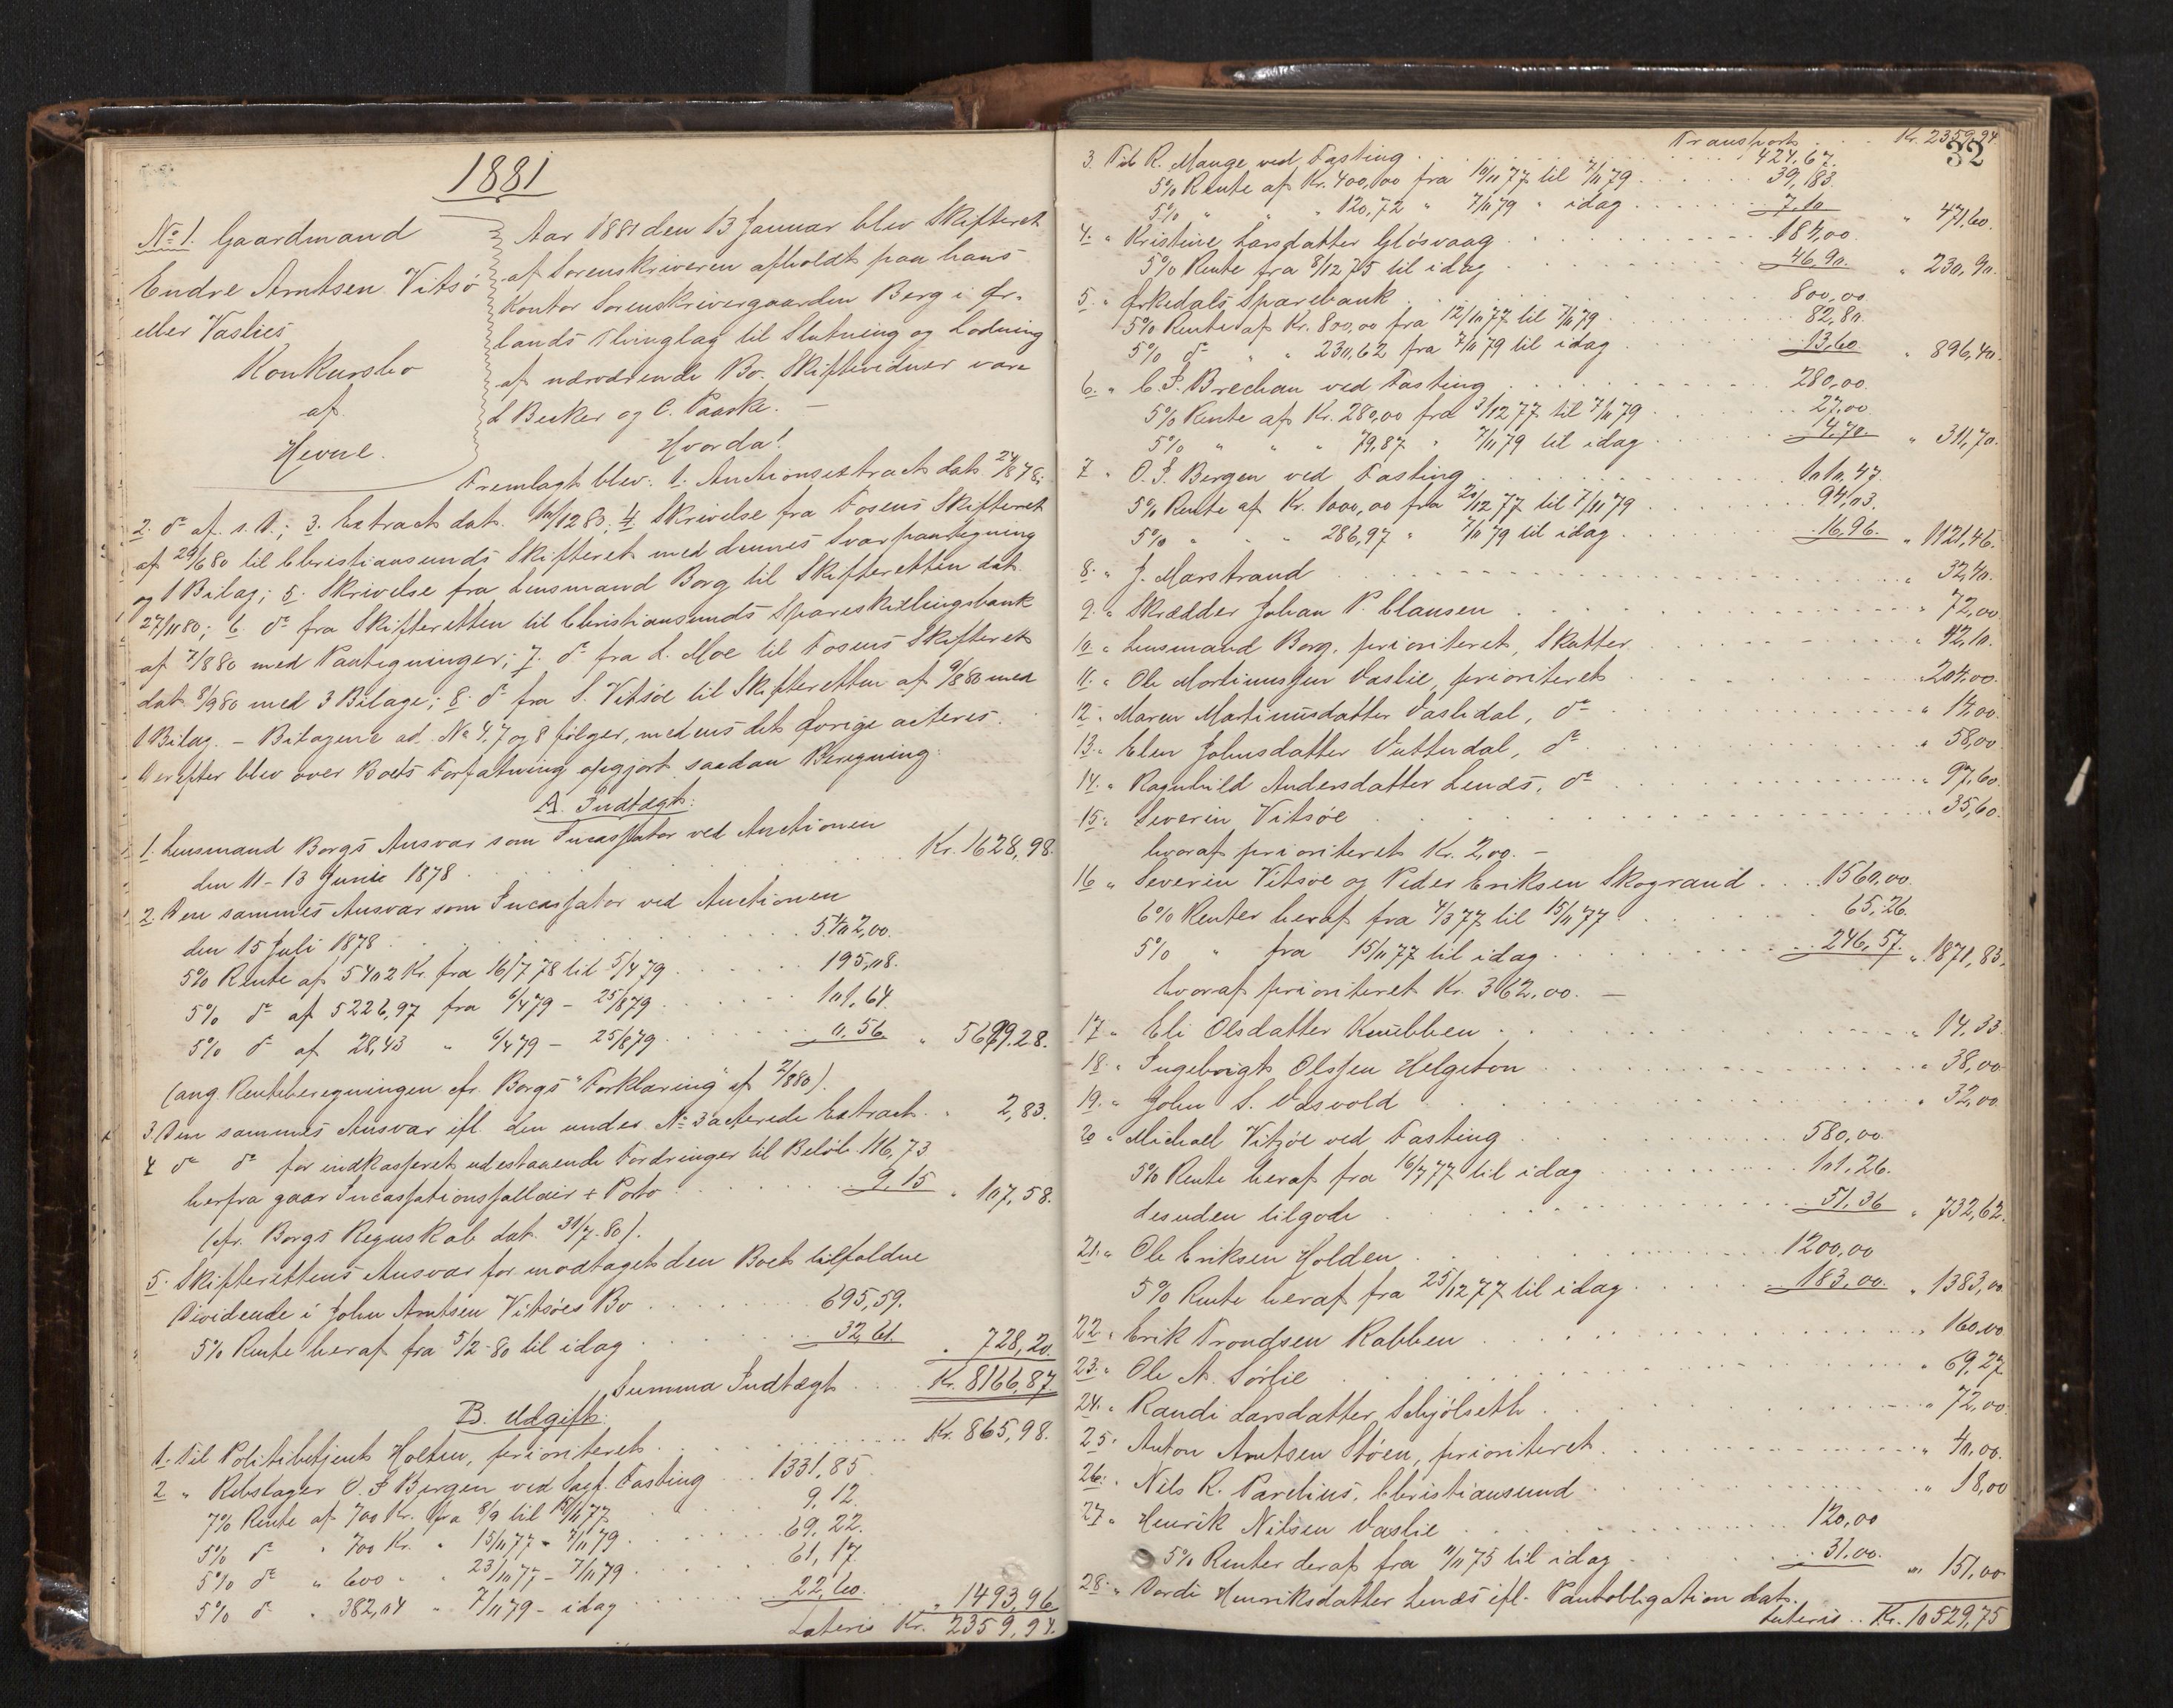 1881
No 1. Gaardmand
Endre Arntsen Vitsø
eller Vaslies
Konkursbo
af
Hevne.
Aar 1881 den 13 Januar blev Skifteret
af Sorenskriveren afholdt paa hans
Kontor Sorenskrivergaarden Berg i Ør-
lands Thinglag til Slutning og Lodning
af nærværende Bo. Skiftevidner vare
L Becker og C. Paaske. —
Hvorda!
Fremlagt blev: 1. Auctionsextract dat. 24/8 78;
2. do af s. D.; 3. Extract dat. 10/12 80; 4. Skrivelse fra Fosens Skifteret
af 29/6 80 til Christiansunds Skifteret med dennes Svarpaategning
og 1 Bilag; 5. Skrivelse fra Lensmand Borg til Skifteretten dat.
27/11 80; 6. do fra Skifteretten til Christiansunds Spareskillingsbank
af 7/8 80 med Paategninger; 7. do fra L. Moe til Fosens Skifteret
dat. 8/9 80 med 3 Bilage; 8. do fra S. Vitsøe til Skifteretten af 9/8 80 med
1 Bilag. – Bilagene ad No 4, 7 og 8 følger, medens det øvrige acteres.
Derefter blev over Boets Forfatning opgjort saadan Beregning:
A. Indtægt:
1. Lensmand Borgs Ansvar som Incassator ved Auctionen
den 11–13 Juni 1878 . . . Kr. 1628,98.
2. Den sammes Ansvar som Incassator ved Auctionen
den 15 Juli 1878 . . . 5402,00.
5% Rente af 5402 Kr. fra 16/7 78 til 5/4 79 . . . 195,08.
5% do af 5226,97 fra 6/4 79 – 25/8 79 . . . 101,64.
5% do af 28,43 " 6/4 79 – 25/8 79 . . . 0,56 " 5699.28.
(ang. Renteberegningen cfr. Borgs "Forklaring" af 2/8 80).
3. Den sammes Ansvar ifl. den under No 3 acterede Extract . " 2,83.
4 do do for indkasseret udestaaende Fordringer til Beløb 116,73
herfra gaar Incassationssallair + Porto . . . 9,15 " 107,58.
(cfr. Borgs Regnskab dat. 31/7 80).
5. Skifterettens Ansvar for modtaget den Boet tilfaldne
Dividende i John Arntsen Vitsøes Bo . . . 695,59.
5% Rente heraf fra 5/2 80 til idag . . . 32,61. " 728,20.
Summa Indtægt . . . Kr. 8166,87
B. Udgift:
1. Til Politibetjent Holten, prioriteret . . . Kr. 865,98.
2 " Rebslager O. I Bergen ved Sagf. Fasting . . 1331,85
7% Rente af 700 Kr. fra 8/9 til 15/11 77 9,12.
5% do " 700 Kr. " 15/11 77 – 7/11 79 . . . 69,22.
5% do " 600 " " 23/11 77 – 7/11 79 . . . 61,17.
5% do " 382,04 " 7/11 79 – idag . . . 22,60. " 1493,96
Lateris Kr. 2359,94.
32
Transport . . . Kr. 2359,94
3. Til R. Mauge ved Fasting . . . 424,67.
5% Rente af Kr. 400,00 fra 19/11 77 til 7/11 79 . . . 39,83.
5% " " " 120,72 " 7/11 79 " idag . . . 7,10 " 471,60.
4. " Kristine Larsdatter Gløsvaag . . . 184,00.
5% Rente fra 8/12 75 til idag . . . 46,90. " 230,90.
5. " Ørkedals Sparebank . . . 800,00
5% Rente af Kr. 800,00 fra 12/10 77 til 7/11 79 . . . 82,80.
5% do " " 230,62 fra 7/11 79 til idag . . . 13,60 " 896,40.
6. " C. I. Brechan ved Fasting . . . 280,00.
5% Rente af Kr. 280,00 fra 3/12 77 til 7/11 79 . . . 27,00.
5% " " " 79,87 " 7/11 79 til idag . . . 4,70. " 311,70.
7 " O. I. Bergen ved Fasting . . . 1010,47
5% Rente af Kr. 1000,00 fra 20/12 77 til 7/11 79 . . . 94,03.
5% " " " 286,97 " 7/11 79 til idag . . . 16,96. " 1121,46.
8. " J. Marstrand . . . " 32,40.
9. " Skrædder Johan P. Clausen . . . " 72,00
10. " Lensmand Borg, prioriteret, Skatter . . . " 42,10.
11. " Ole Martinussen Vaslie, prioriteret . . . " 204,00.
12. " Maren Martinusdatter Vaslidal, do . . . " 14,00.
13. " Elen Johnsdatter Vatterdal, do . . . " 58,00.
14. " Ragnhild Andersdatter Lenes, do . . . " 97,60.
15. " Severin Vitsøe . . . 35,60.
hvoraf prioriteret Kr. 2,00. –
16 " Severin Vitsøe og Peder Eriksen Skogrand . . . 1560,00.
6% Renter heraf fra 4/3 77 til 15/11 77 . . . 65,26.
5% " fra 15/11 77 til idag . . . 246,57. " 1871,83.
hvoraf prioriteret Kr. 362,00. —
17. " Eli Olsdatter Knubben . . . " 14,33
18. " Ingebrigt Olssen Helgeton . . . " 38,00
19. " John S. Vasvold . . . " 32,00.
20 " Michael Vitsøe ved Fasting . . . 580,00.
5% Rente heraf fra 16/7 77 til idag . . . 101,26.
desuden tilgode . . . 51,36 " 732,62.
21. " Ole Eriksen Holden . . . 1200,00
5% Rente heraf fra 25/12 77 til idag . . . 183,00. " 1383,00
22 " Erik Trondsen Rabben . . . " 160,00.
23. " Ole A. Sørlie . . . " 69,27
24. " Randi Larsdatter Schjølseth . . . " 72,00.
25. " Anton Arntsen Støen, prioriteret . . . " 40,00.
26. " Nils R. Parelius, Christiansund . . . " 18,00
27 " Henrik Nilsen Vaslie . . . 120,00
5% Renter deraf fra 11/11 75 til idag . . . 31,00. " 151,00
28. " Dordi Henriksdatter Lenes ifl. Pantobligation dat.
Lateris . . Kr. 10529,75